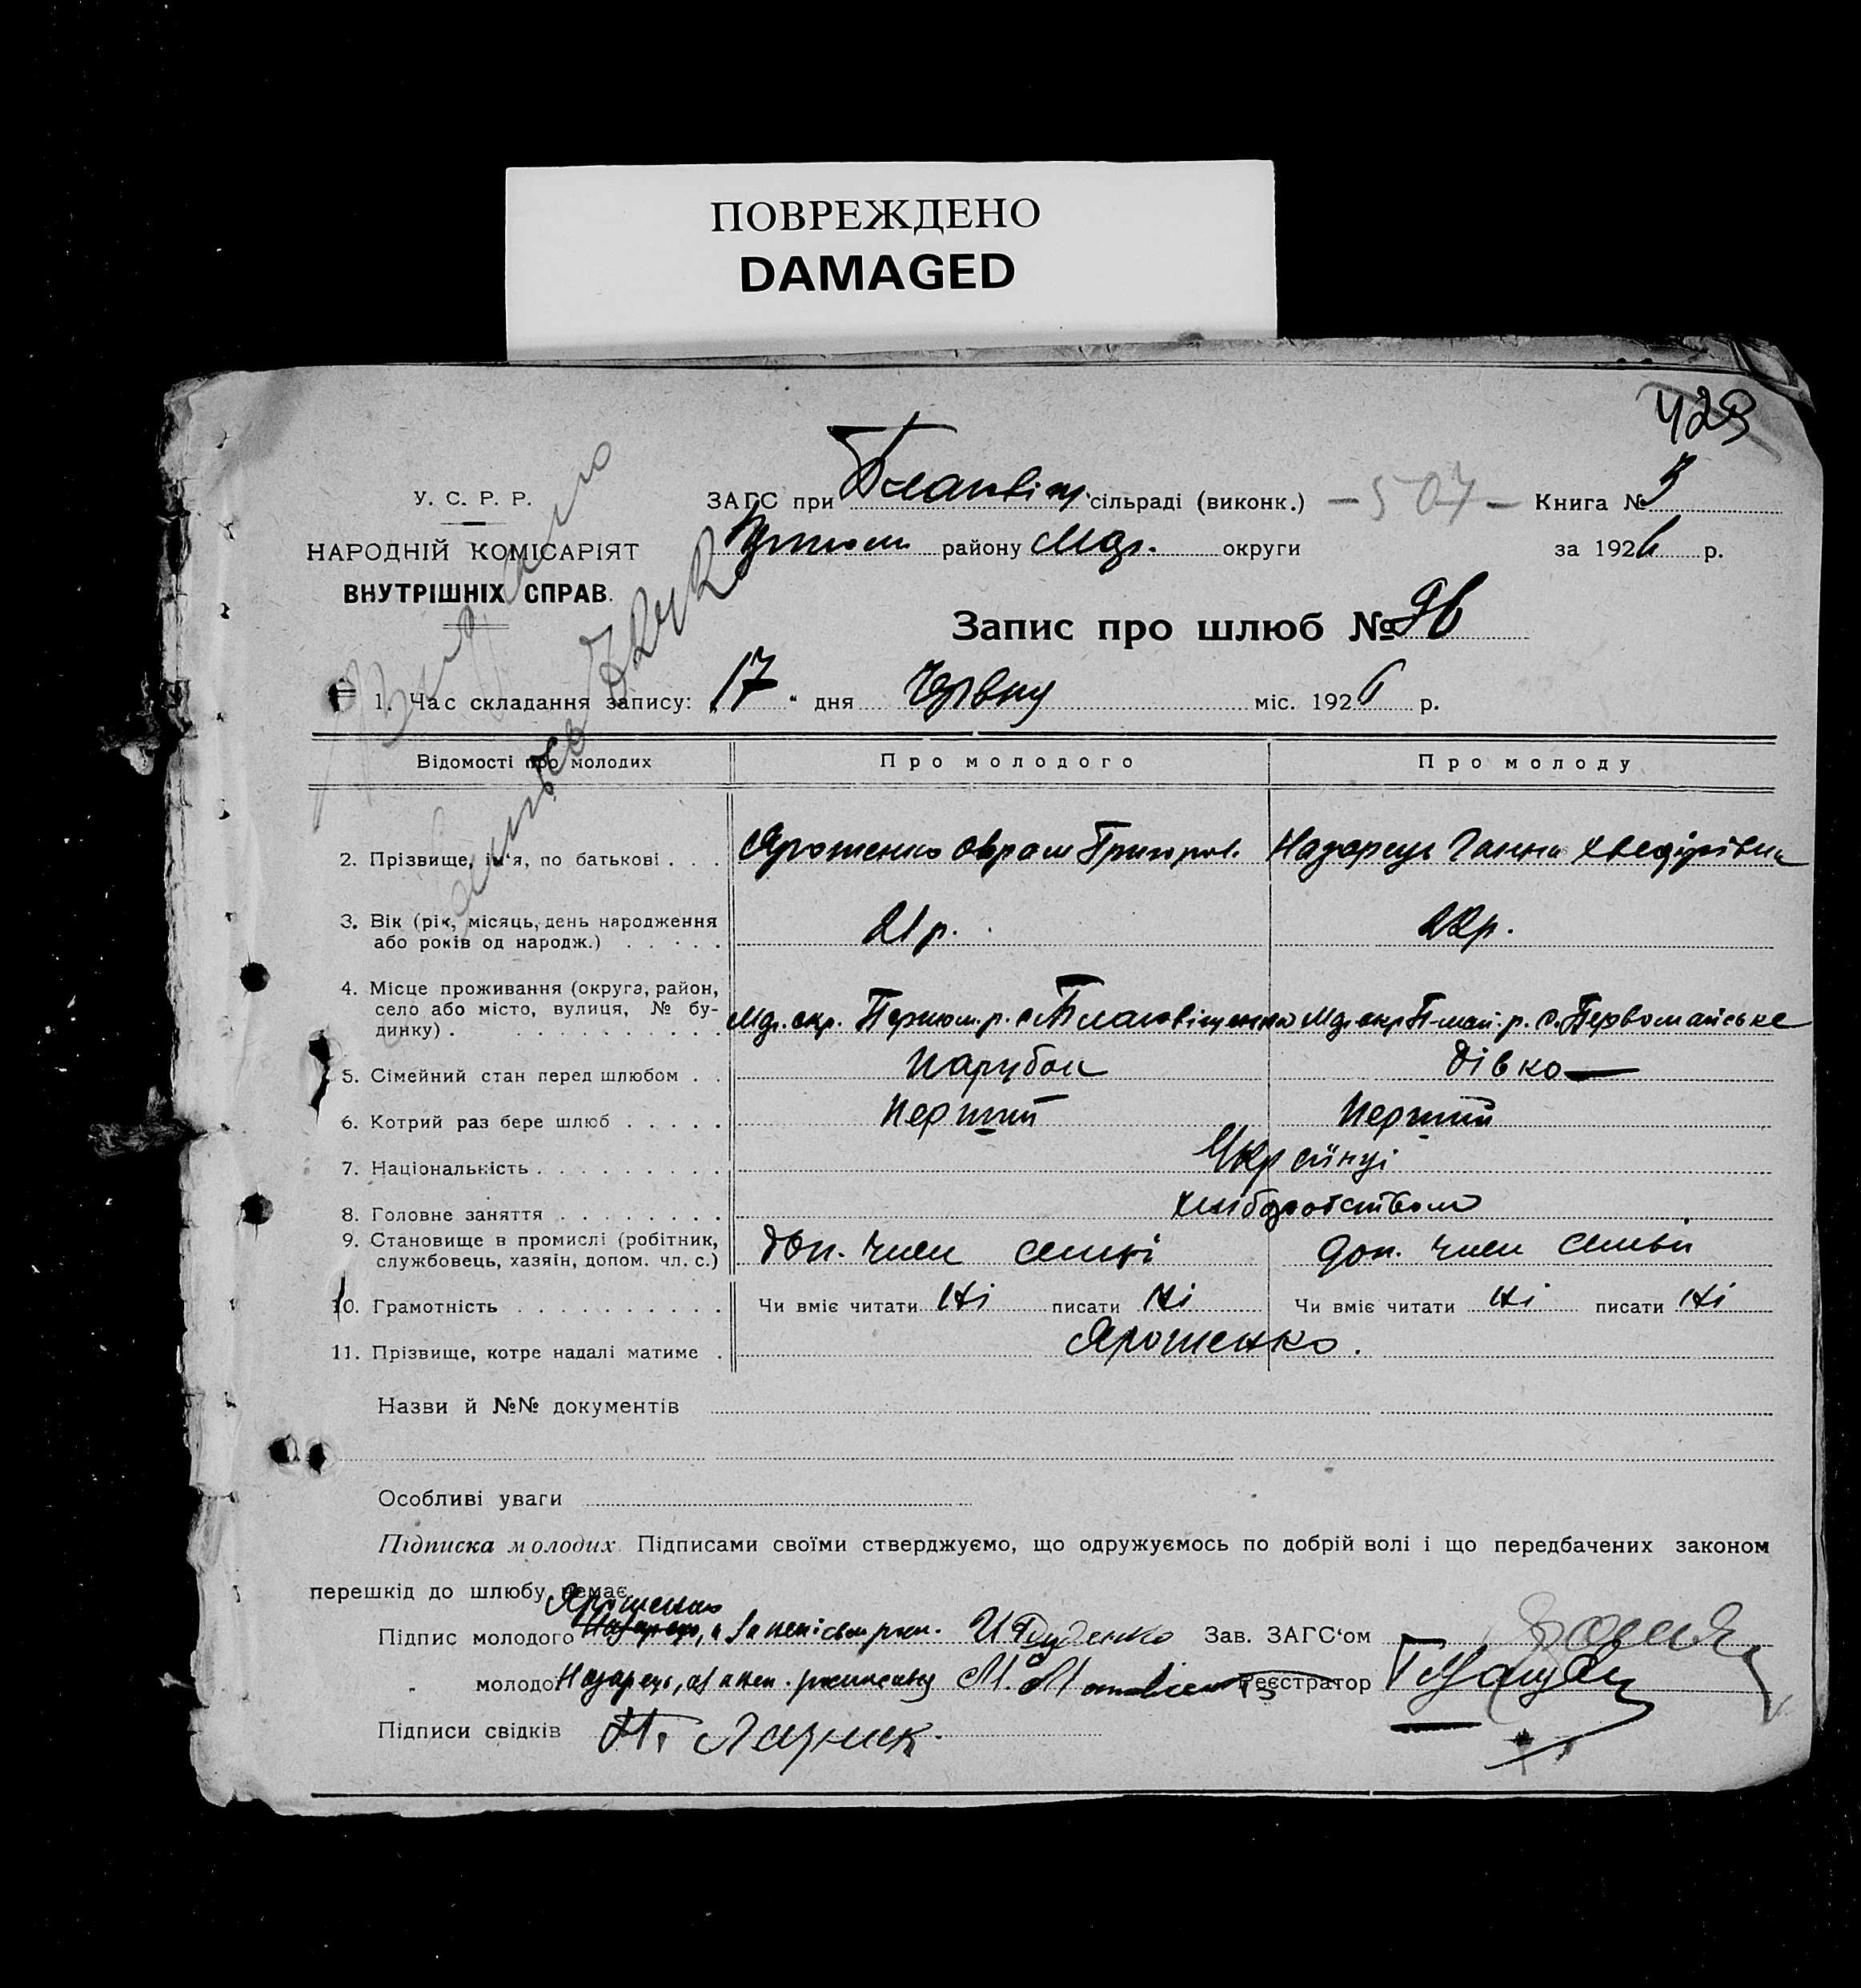 ПОВРЕЖДЕНО
DAMAGED
429
У. С. Р. Р.
НАРОДНІЙ КОМІСАРІЯТ
ВНУТРІШНІХ СПРАВ.
ЗАГС при Благовіщ. сільраді (виконк.) - 507 - Книга № 3
району Мар. округи за 1926 р.
Запис про шлюб № 96
Видано
1. Час складання запису: „ 17 “ дня Червня міс. 1926 р.
Відомості про молодих Про молодого Про молоду
2. Прізвище, ім‘я, по батькові . . . Ярошенко Оврам Григоров. Назарець Ганна Хведірівна
3. Вік (рік, місяць, день народження
або років од народж.) . . . . . 21 р. 22 р.
4. Місце проживання (округа, район,
село або місто, вулиця, № бу-
динку) . . . . . . . . . . Мар. окр. Первом. р. с. Благовіщенка Мар. окр П-май. р. с. Первомайське
5. Сімейний стан перед шлюбом . . Парубок Дівка
6. Котрий раз бере шлюб . . . . . Перший Перший
7. Національність . . . . . . . . . Українці
8. Головне заняття . . . . . . . . Хліборобством
9. Становище в промислі (робітник,
службовець, хазяїн, допом. чл. с.) доп. член семьі доп. член семьи
10. Грамотність . . . . . . . . . . Чи вміє читати Ні писати Ні Чи вміє читати Ні писати Ні
11. Прізвище, котре надалі матиме . Ярошенко.
Назви й №№ документів
Особливі уваги
Підписка молодих. Підписами своїми стверджуємо, що одружуємось по добрій волі і що передбачених законом
перешкід до шлюбу немає.
Ярошенко
Підпис молодого Назарець, И Дуденко Зав. ЗАГС‘ом
„ молодої Назарець, М. Реєстратор
Підписи свідків